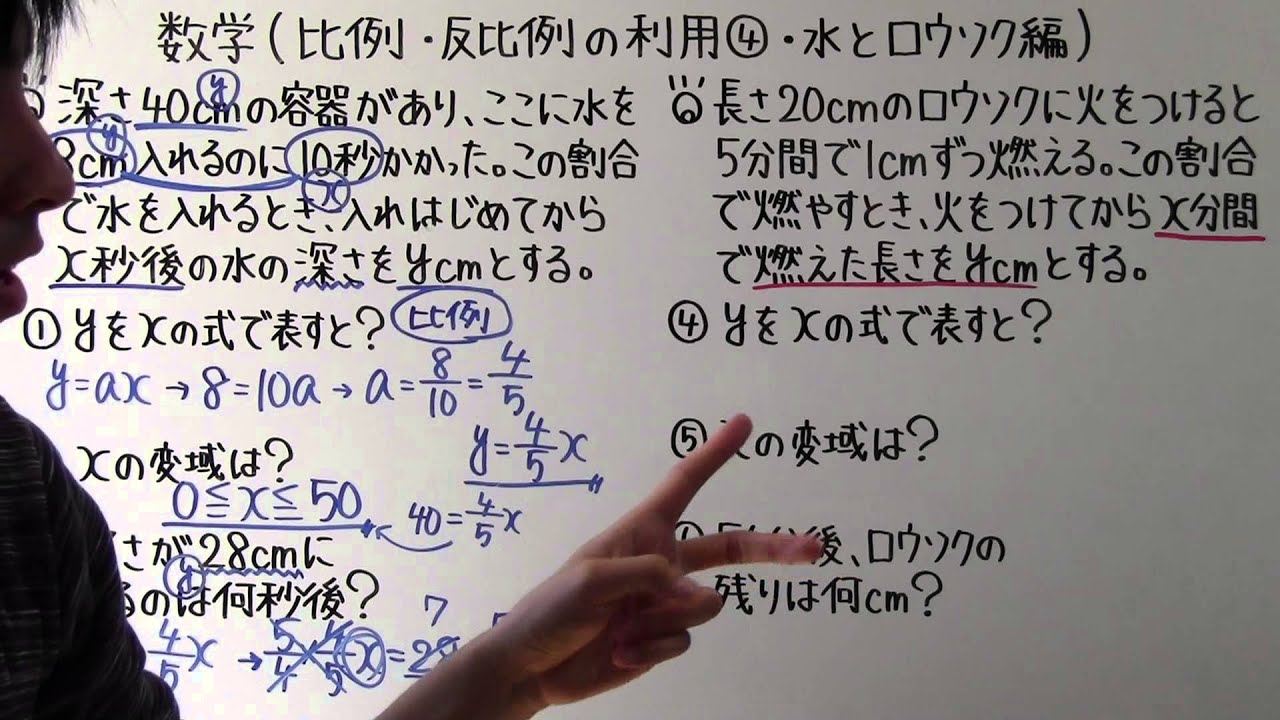 数学(比例・反比例の利用④・水とロウソク編)
深さ40cmの容器があり、ここに水を
y
8cm入れるのに10秒かかった。この割合
y
x
で水を入れるとき、入れはじめてから
x秒後の水の深さをycmとする。
① yをxの式で表すと? 比例
y=ax→8=10a→a=8/10=4/5
y=4/5x
xの変域は?
0≦x≦50
40=4/5x
さが28cmに
y
るのは何秒後?
4/5x →5/4×4/5x=28
7
長さ20cmのロウソクに火をつけると
5分間で1cmずつ燃える。この割合
で燃やすとき、火をつけてからx分間
で燃えた長さをycmとする。
④ yをxの式で表すと?
⑤ xの変域は?
後、ロウソクの
残りは何cm?